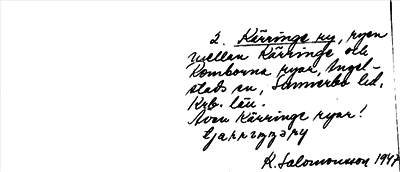 2. Kärringe ry, ryen
mellan Kärringe och
Komborna ryar, Ingel-
stads sn, Sunnerbo hd,
Krb. län.
Även Kärringe ryar!
K. Salomonsson 1947